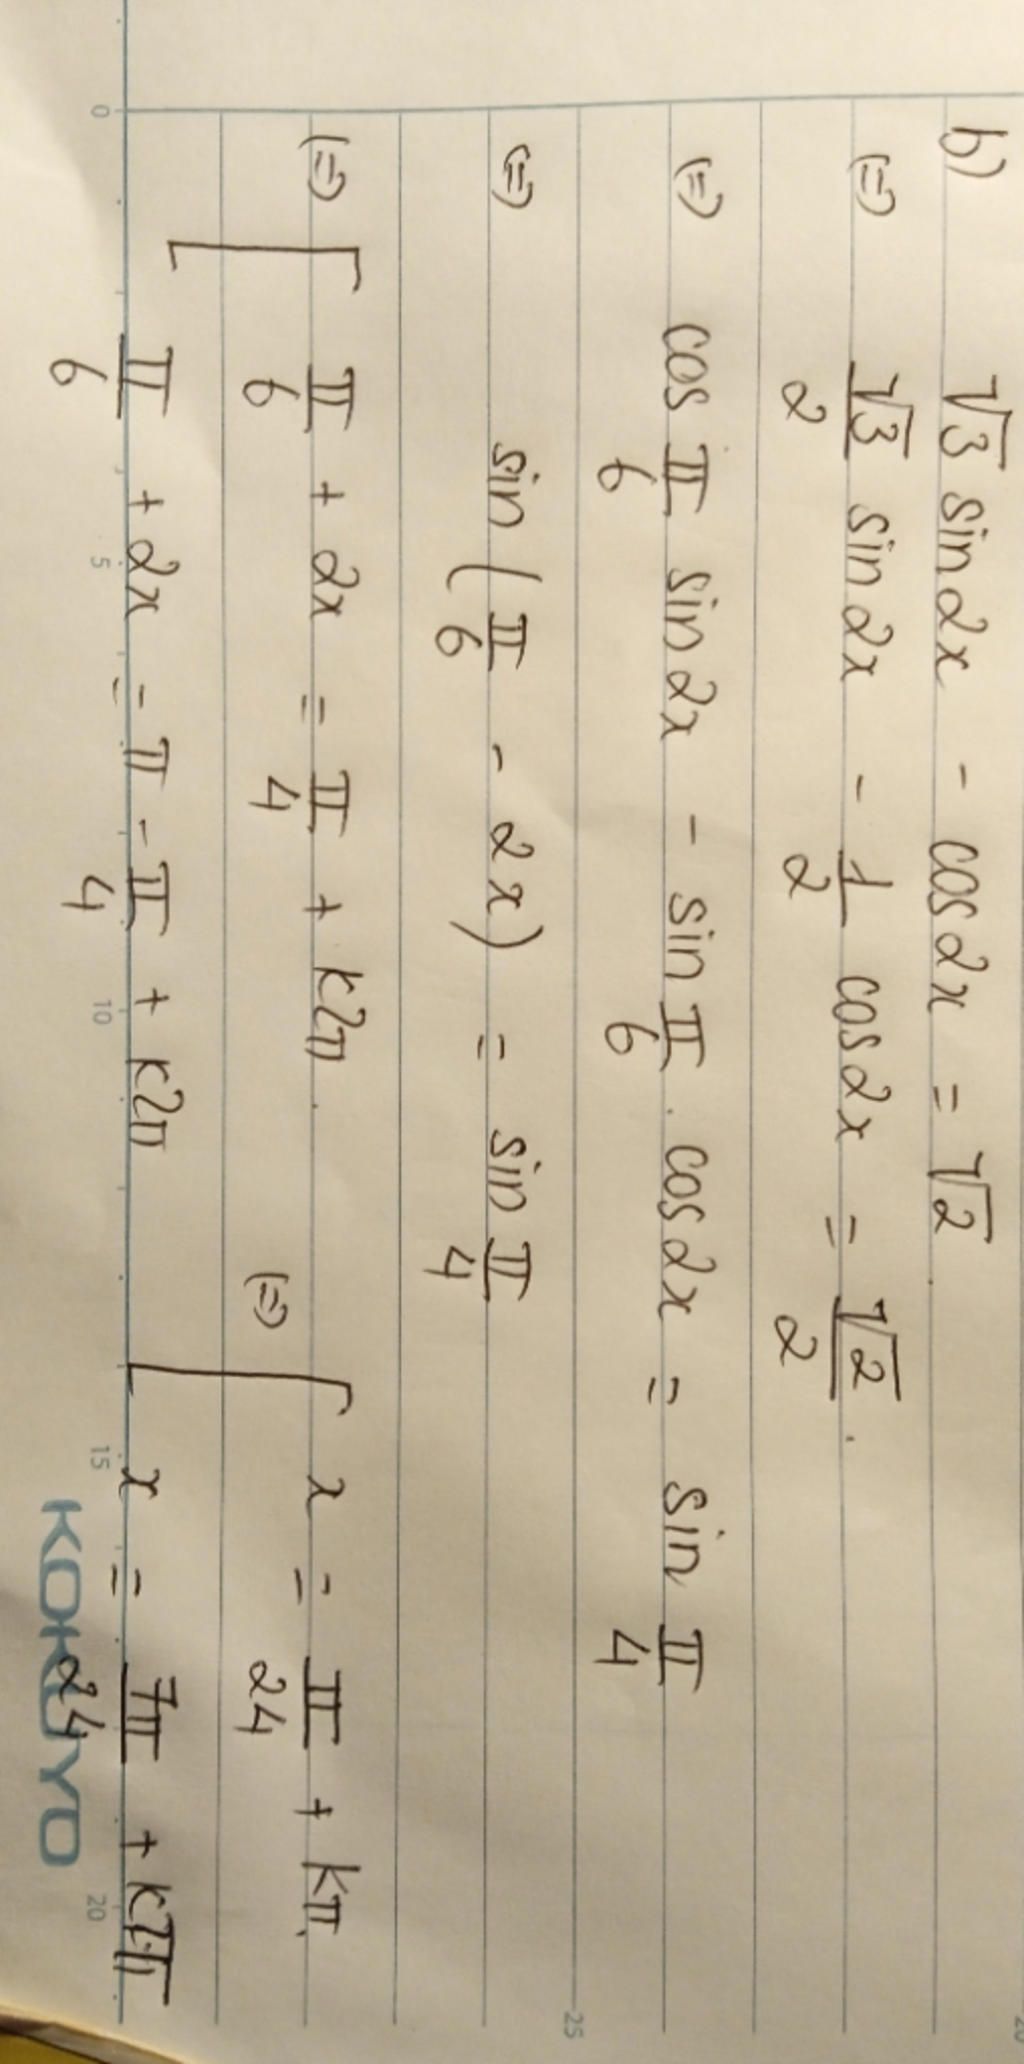 b) √3 sin2x - cos2x = √2.
(=) √3/2 sin2x - 1/2 cos2x = √2/2.
(=) cos π/6 sin2x - sin π/6 . cos2x = sin π/4
(=) sin(π/6 - 2x) = sin π/4
(=) [ π/6 + 2x = π/4 + k2π. (=) [ x = π/24 + kπ.
π/6 + 2x = π - π/4 + k2π x = 7π/24 + k2π
0 5 10 15 20
25
20
KOKUYO